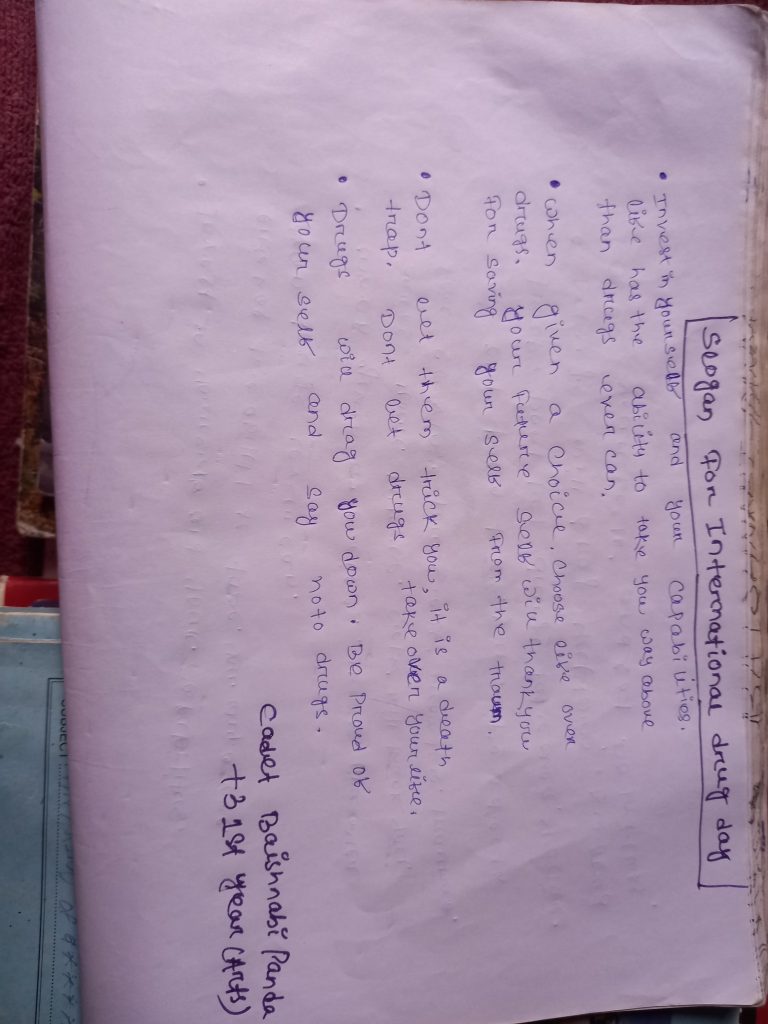 Slogan For International drug day
• Invest in yourself and your capabilities.
life has the ability to take you way above
than drugs ever can.
• When given a choice, choose life over
drugs. your future self will thank you
For saving your self From the traum.
• Dont let them trick you, it is a death
trap. Dont let drugs take over your life.
• Drugs will drag you down. Be Proud of
your self and say no to drugs.
Cadet Baishnabi Panda
+3 1st year (Arts)
SUBJECT